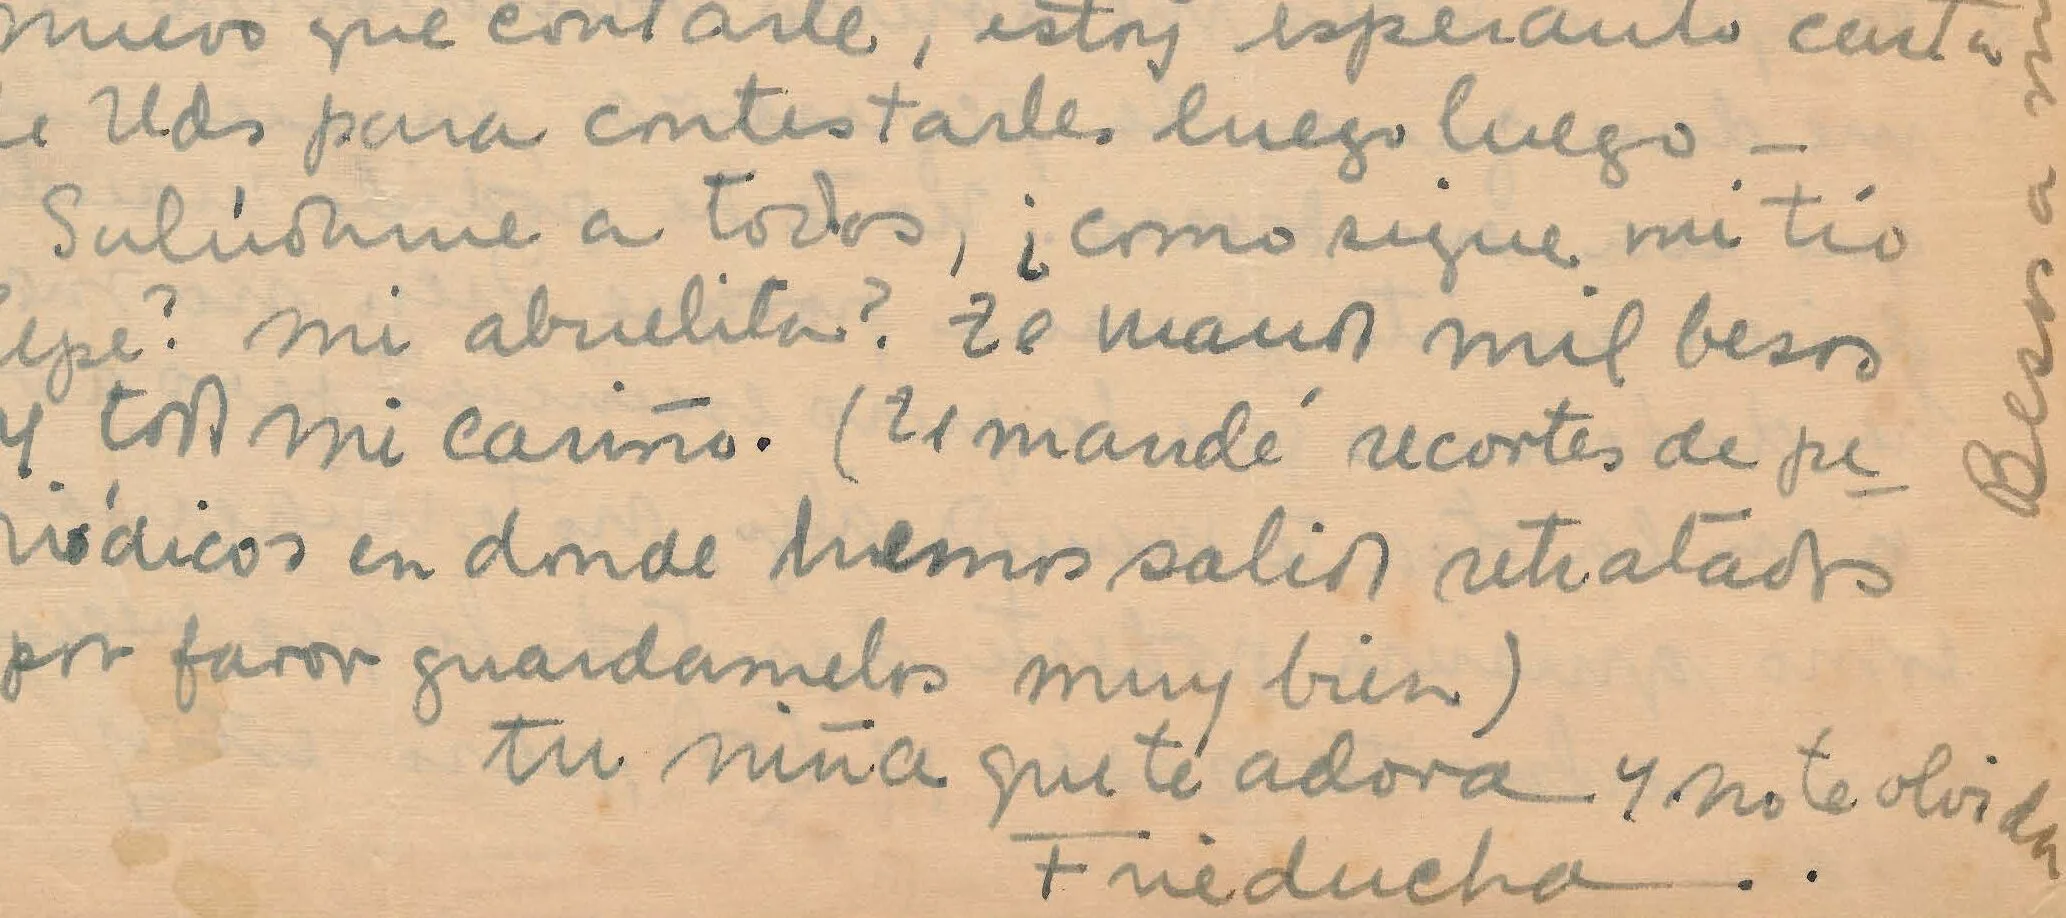 nuevo que contarle, estoy esperando carta
de Uds para contestarles luego luego _
Salúdame a todos, ¿como sigue mi tío
Pepe? mi abuelita? Te mando mil besos
y todo mi cariño. (Te mandé recortes de pe
riódicos en donde hemos salido retratados
por favor guardamelos muy bien)
tu niña que te adora y no te olvida
Frieducha . .
Besos a